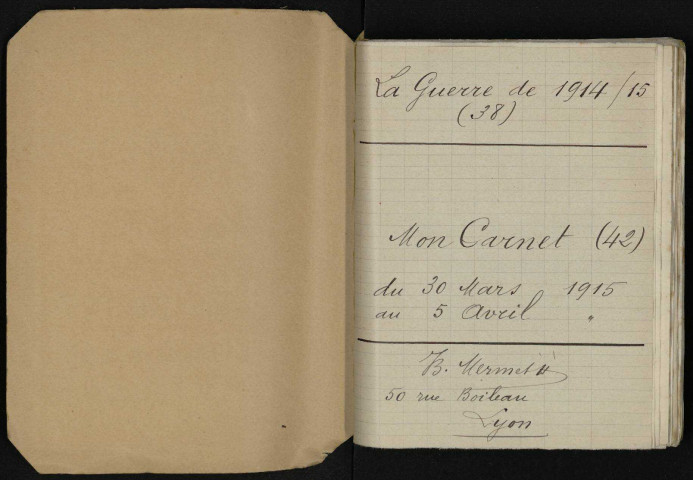 La Guerre de 1914/15
(38)
Mon Carnet (42)
du 30 Mars 1915
au 5 Avril "
B. Mermet
50 rue Boileau
Lyon